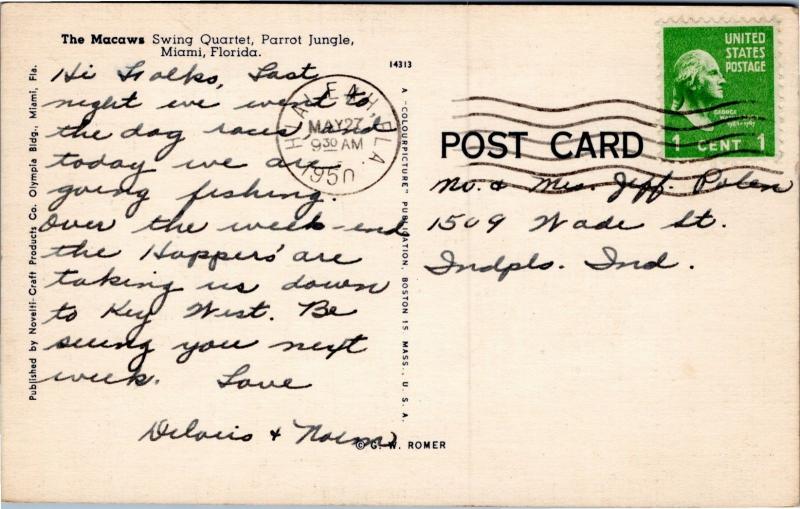 The Macaws Swing Quartet, Parrot Jungle,
Miami, Florida.
Hi Folks, Last
night we went to
the dog races and
today we are
going fishing.
Over the week-end
the Hoppers' are
taking us down
to Key West. Be
seeing you next
week. Love
Delois + Norm
Published by Novelti-Craft Products Co. Olympia Bldg., Miami, Fla.
14313
A "COLOURPICTURE" PUBLICATION, BOSTON 15, MASS., U. S. A.
© G. W. ROMER
HIALEAH, FLA.
MAY 27
9 30 AM
1950
UNITED
STATES
POSTAGE
GEORGE
1 CENT 1
POST CARD
Mr. & Mrs. Jeff. Polen
1509 Wade St.
Indpls. Ind.